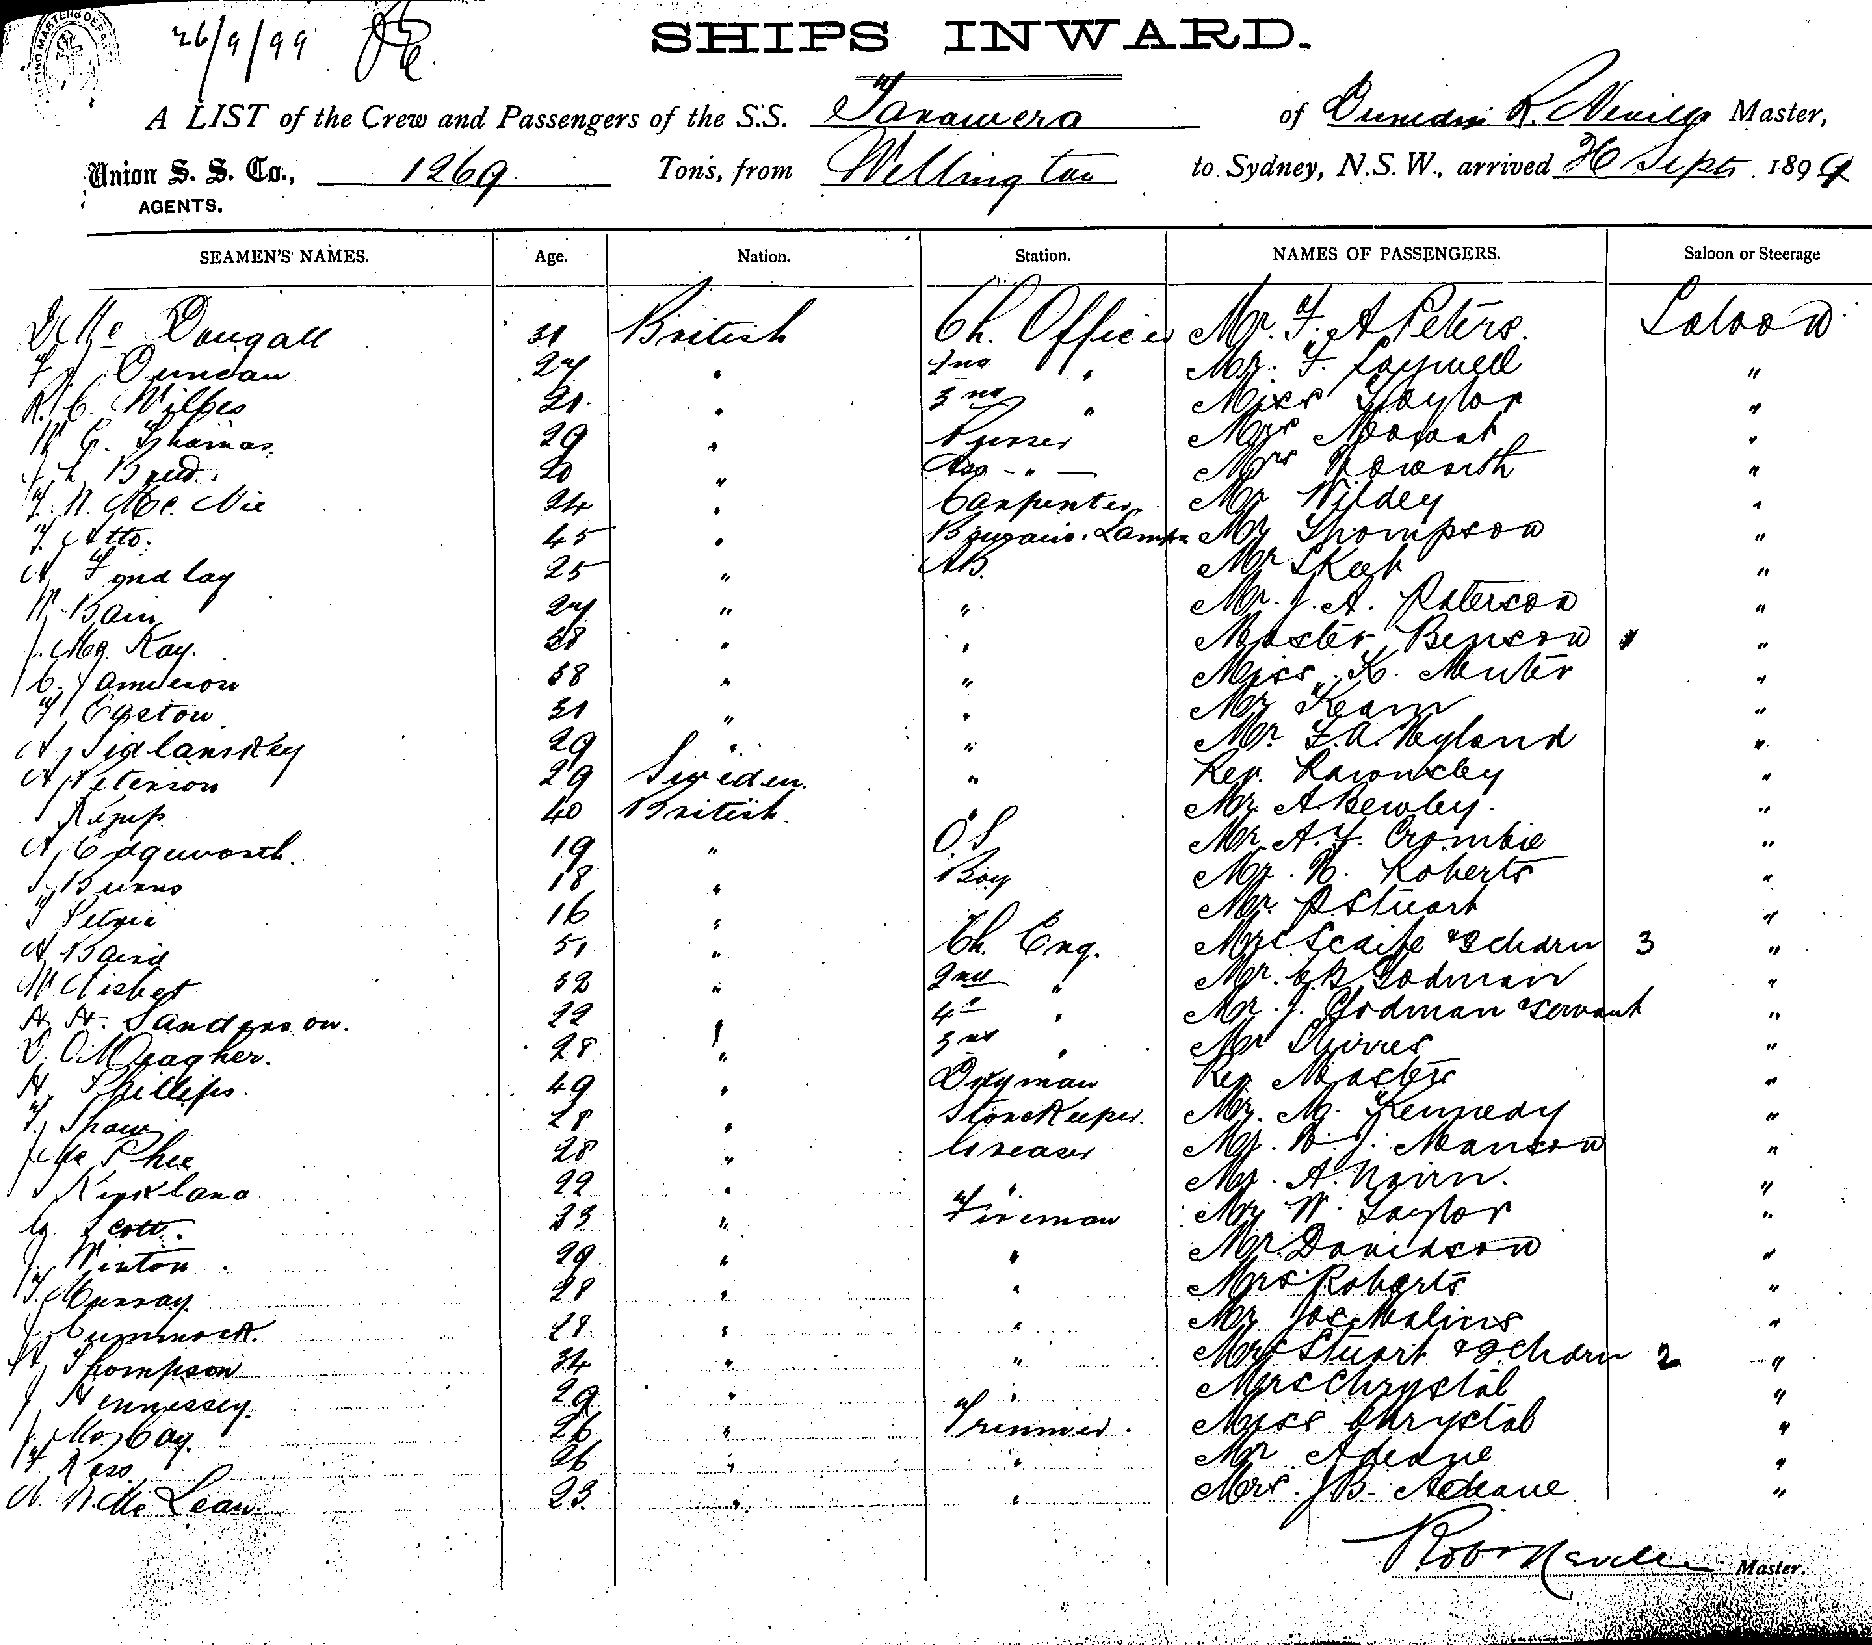 26/9/99
SHIPS INWARD.
A LIST of the Crew and Passengers of the S.S. Tarawera of Dunedin R. Neville Master,
Union S. S. Co., 1269 Tons, from Wellington to Sydney, N.S.W., arrived 26 Sept 1899
AGENTS.
SEAMEN'S NAMES. Age. Nation. Station. NAMES OF PASSENGERS. Saloon or Steerage
D Mc Dougall 31 British Ch. Officer Mr. F. A Peters. Saloon
F J Duncan 27 " 2nd " Mr. F. "
R. C. 21 " 3rd " Miss Taylor "
W G. Thomas 29 " Purser Mrs "
J. L. 20 " Ass - " - Mrs Howorth "
T. N. Mc. Nie 24 " Carpenter Mr Wildey "
T. 45 " Mr Thompson "
A Fyndlay 25 " AB. Mr Skeet "
W. Bain 27 " " Mr. J. A. Paterson "
J. McKay. 38 " " Master Benson "
C. Jamieson 38 " " Miss K. Muter "
T Egston 31 " " Mr Keam "
A Sidlanskey 29 " " Mr. F. A. Hyland "
A Peterson 29 Sweden. " Rev. Rawnsley "
Kemp 40 British. " Mr A Bewley. "
A, Edgeworth. 19 " O.S Mr A. F. Crombie "
Burns 18 " Boy Mr. N. Roberts "
Petrie 16 " Mr. Stuart "
A Baird 51 " Ch. Eng. Mrs Scaife & 3 chdrn 3 "
W Nisbet 32 " 2nd " Mr. C B Godman "
A. H. Sanderson. 22 " 4th " Mr. J. Godman & servant "
D. O Meagher. 28 " 3rd " Mr "
A, Phillips. 49 " Dnyman Rev Masters "
T, Shaw 28 " Storekeeper. Mr. M. Kennedy "
J Mc Phee 28 " Greaser Mr. W. J. Manson "
Kirkland 22 " " Mr. A. Nairn. "
G. Scott. 23 " Fireman Mr W. Taylor "
J. Winton 29 " " Mr Davidson "
T. Murray 28 " " Mrs Roberts "
J, Cummock. 28 " " Mr Jos Malins "
A, Thompson 34 " " Mrs Stuart & 2 chdrn 2 "
J, Hennessey. 29 " " Mrs Chrystal "
J. 26 " Trimmer. Miss Chrystal "
T Ross 26 " " Mr Adeane "
A. N Mc Lean 23 " " Mrs. J B. Adeane "
Robt Neville Master.